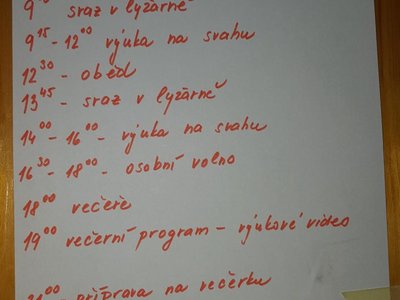 9⁰⁰ sraz v lyžárně
9¹⁵ - 12⁰⁰ výuka na svahu
12³⁰ - oběd
13⁴⁵ - sraz v lyžárně
14⁰⁰ - 16⁰⁰ - výuka na svahu
16³⁰ - 18⁰⁰ - osobní volno
18⁰⁰ večeře
19⁰⁰ večerní program - výukové video
příprava na večerku